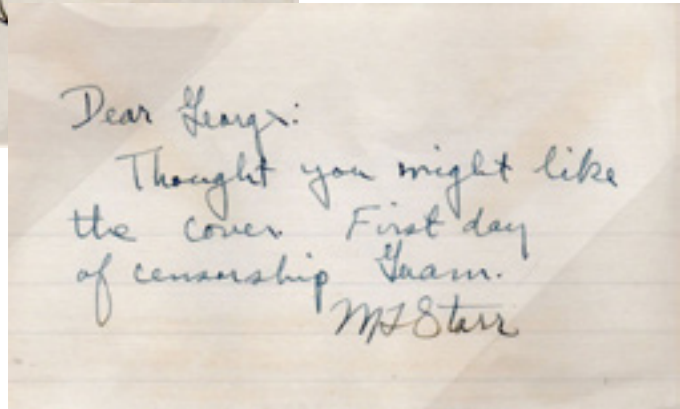 Dear George:
Thought you might like
the cover. First day
of censorship Guam.
M L Starr